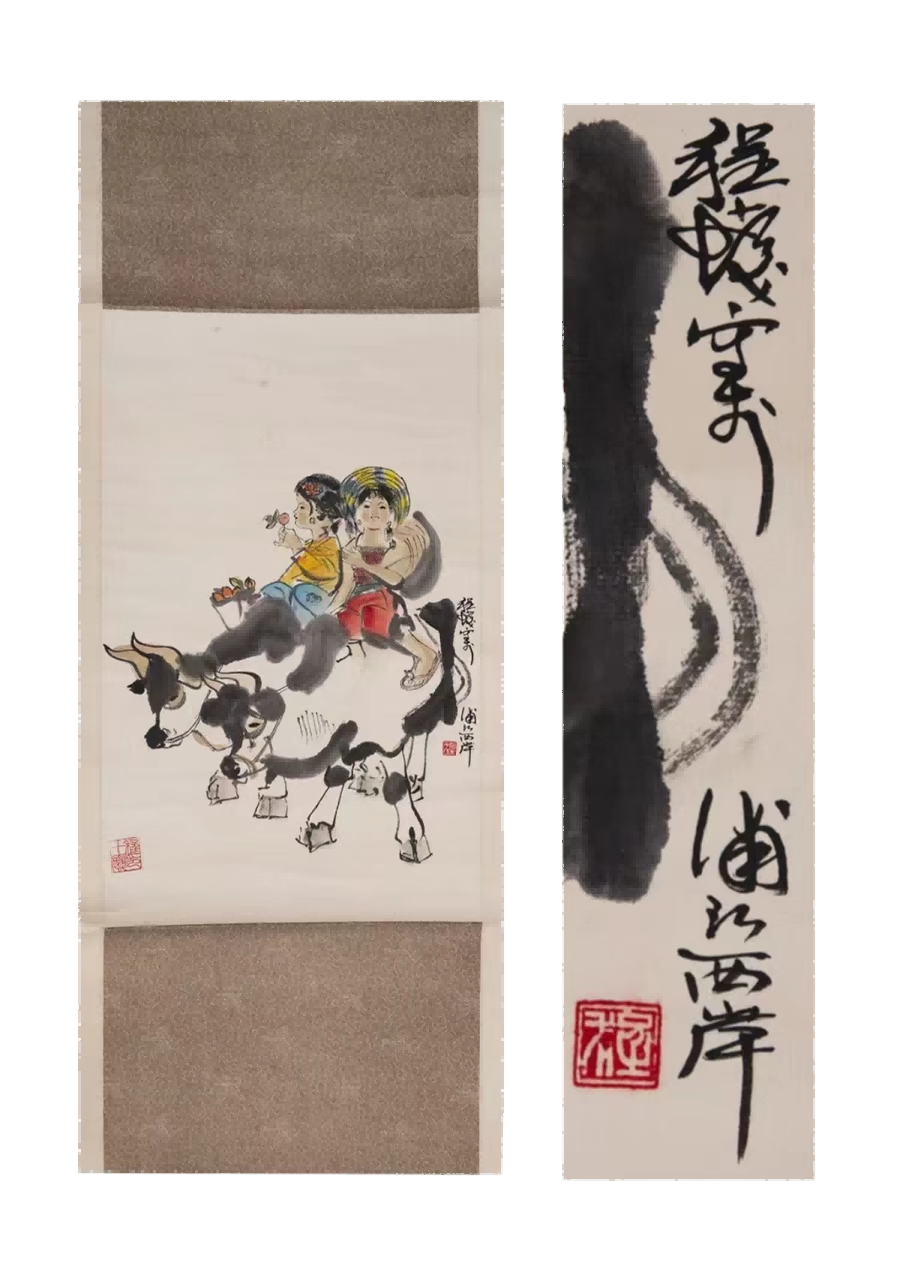 程十髮寫于
浦江西岸
程